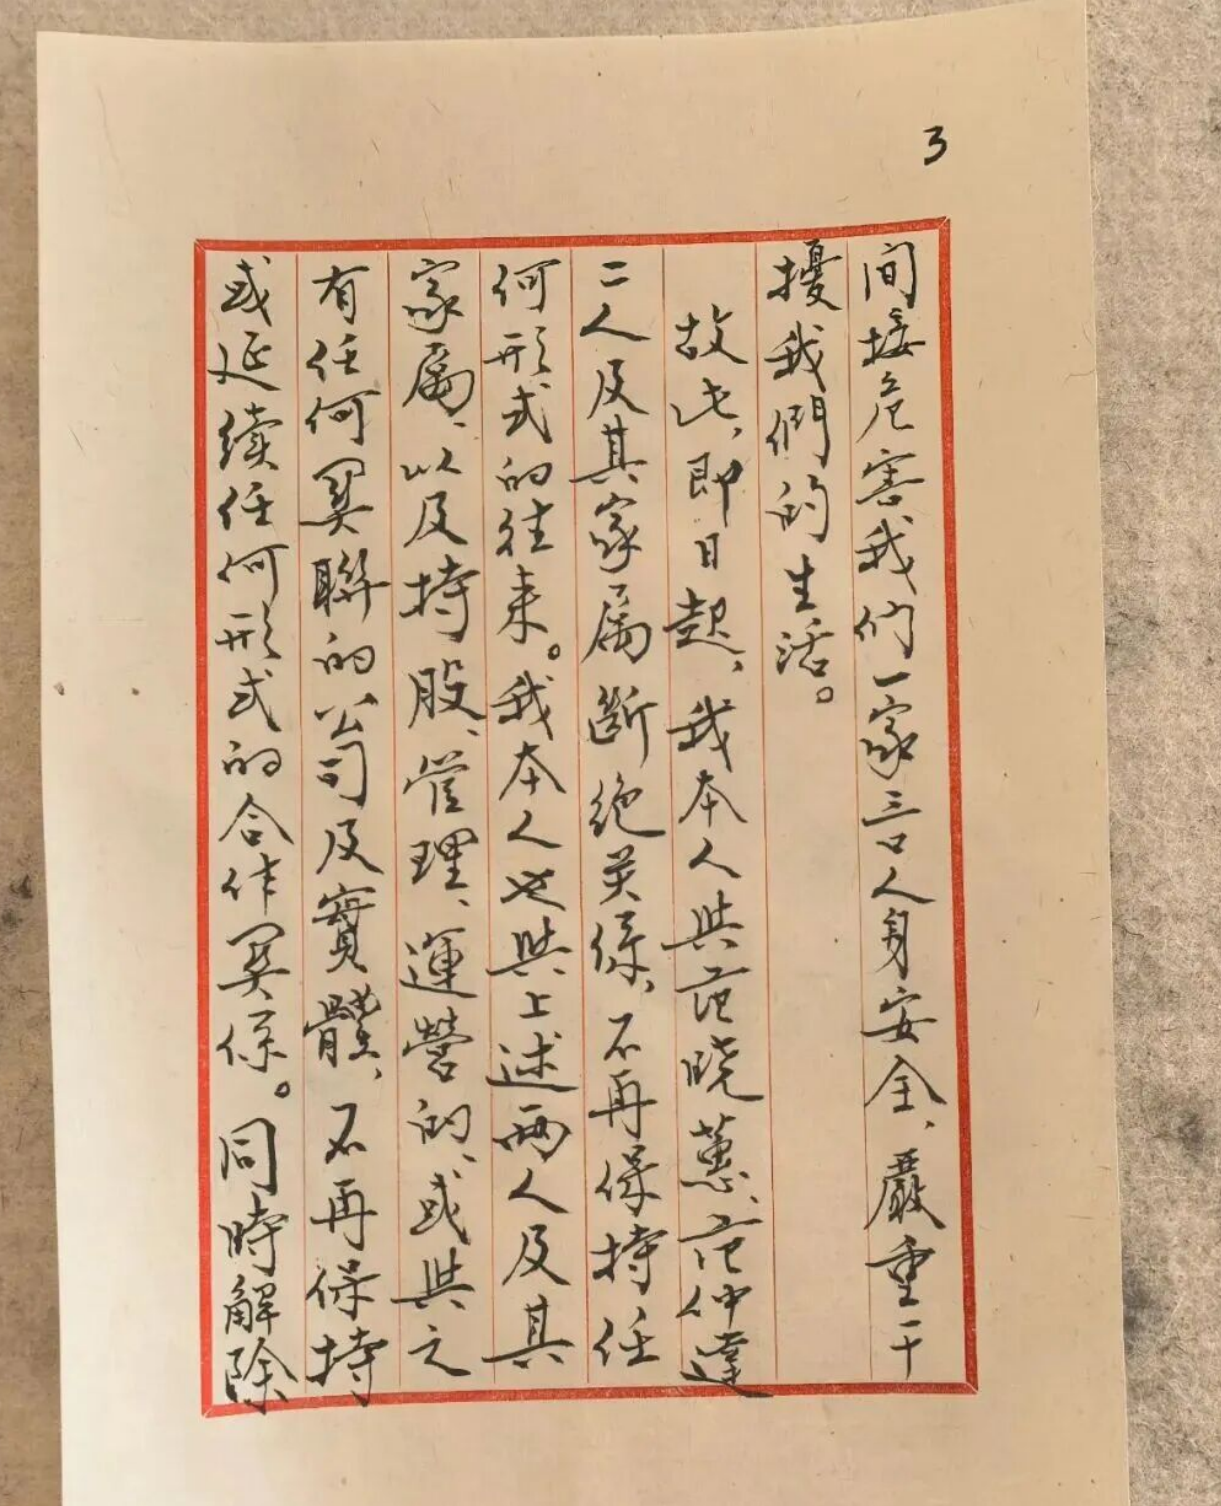 3
间接危害我们一家三口人身安全、嚴重干
擾我們的生活。
故此，即日起、我本人與范晓蕙、范仲達
二人及其家属斷绝关係、不再保持任
何形式的往来。我本人也與上述兩人及其
家属、以及持股、管理、運營的、或與之
有任何関聯的公司及實體、不再保持
或延续任何形式的合作関係。同時解除